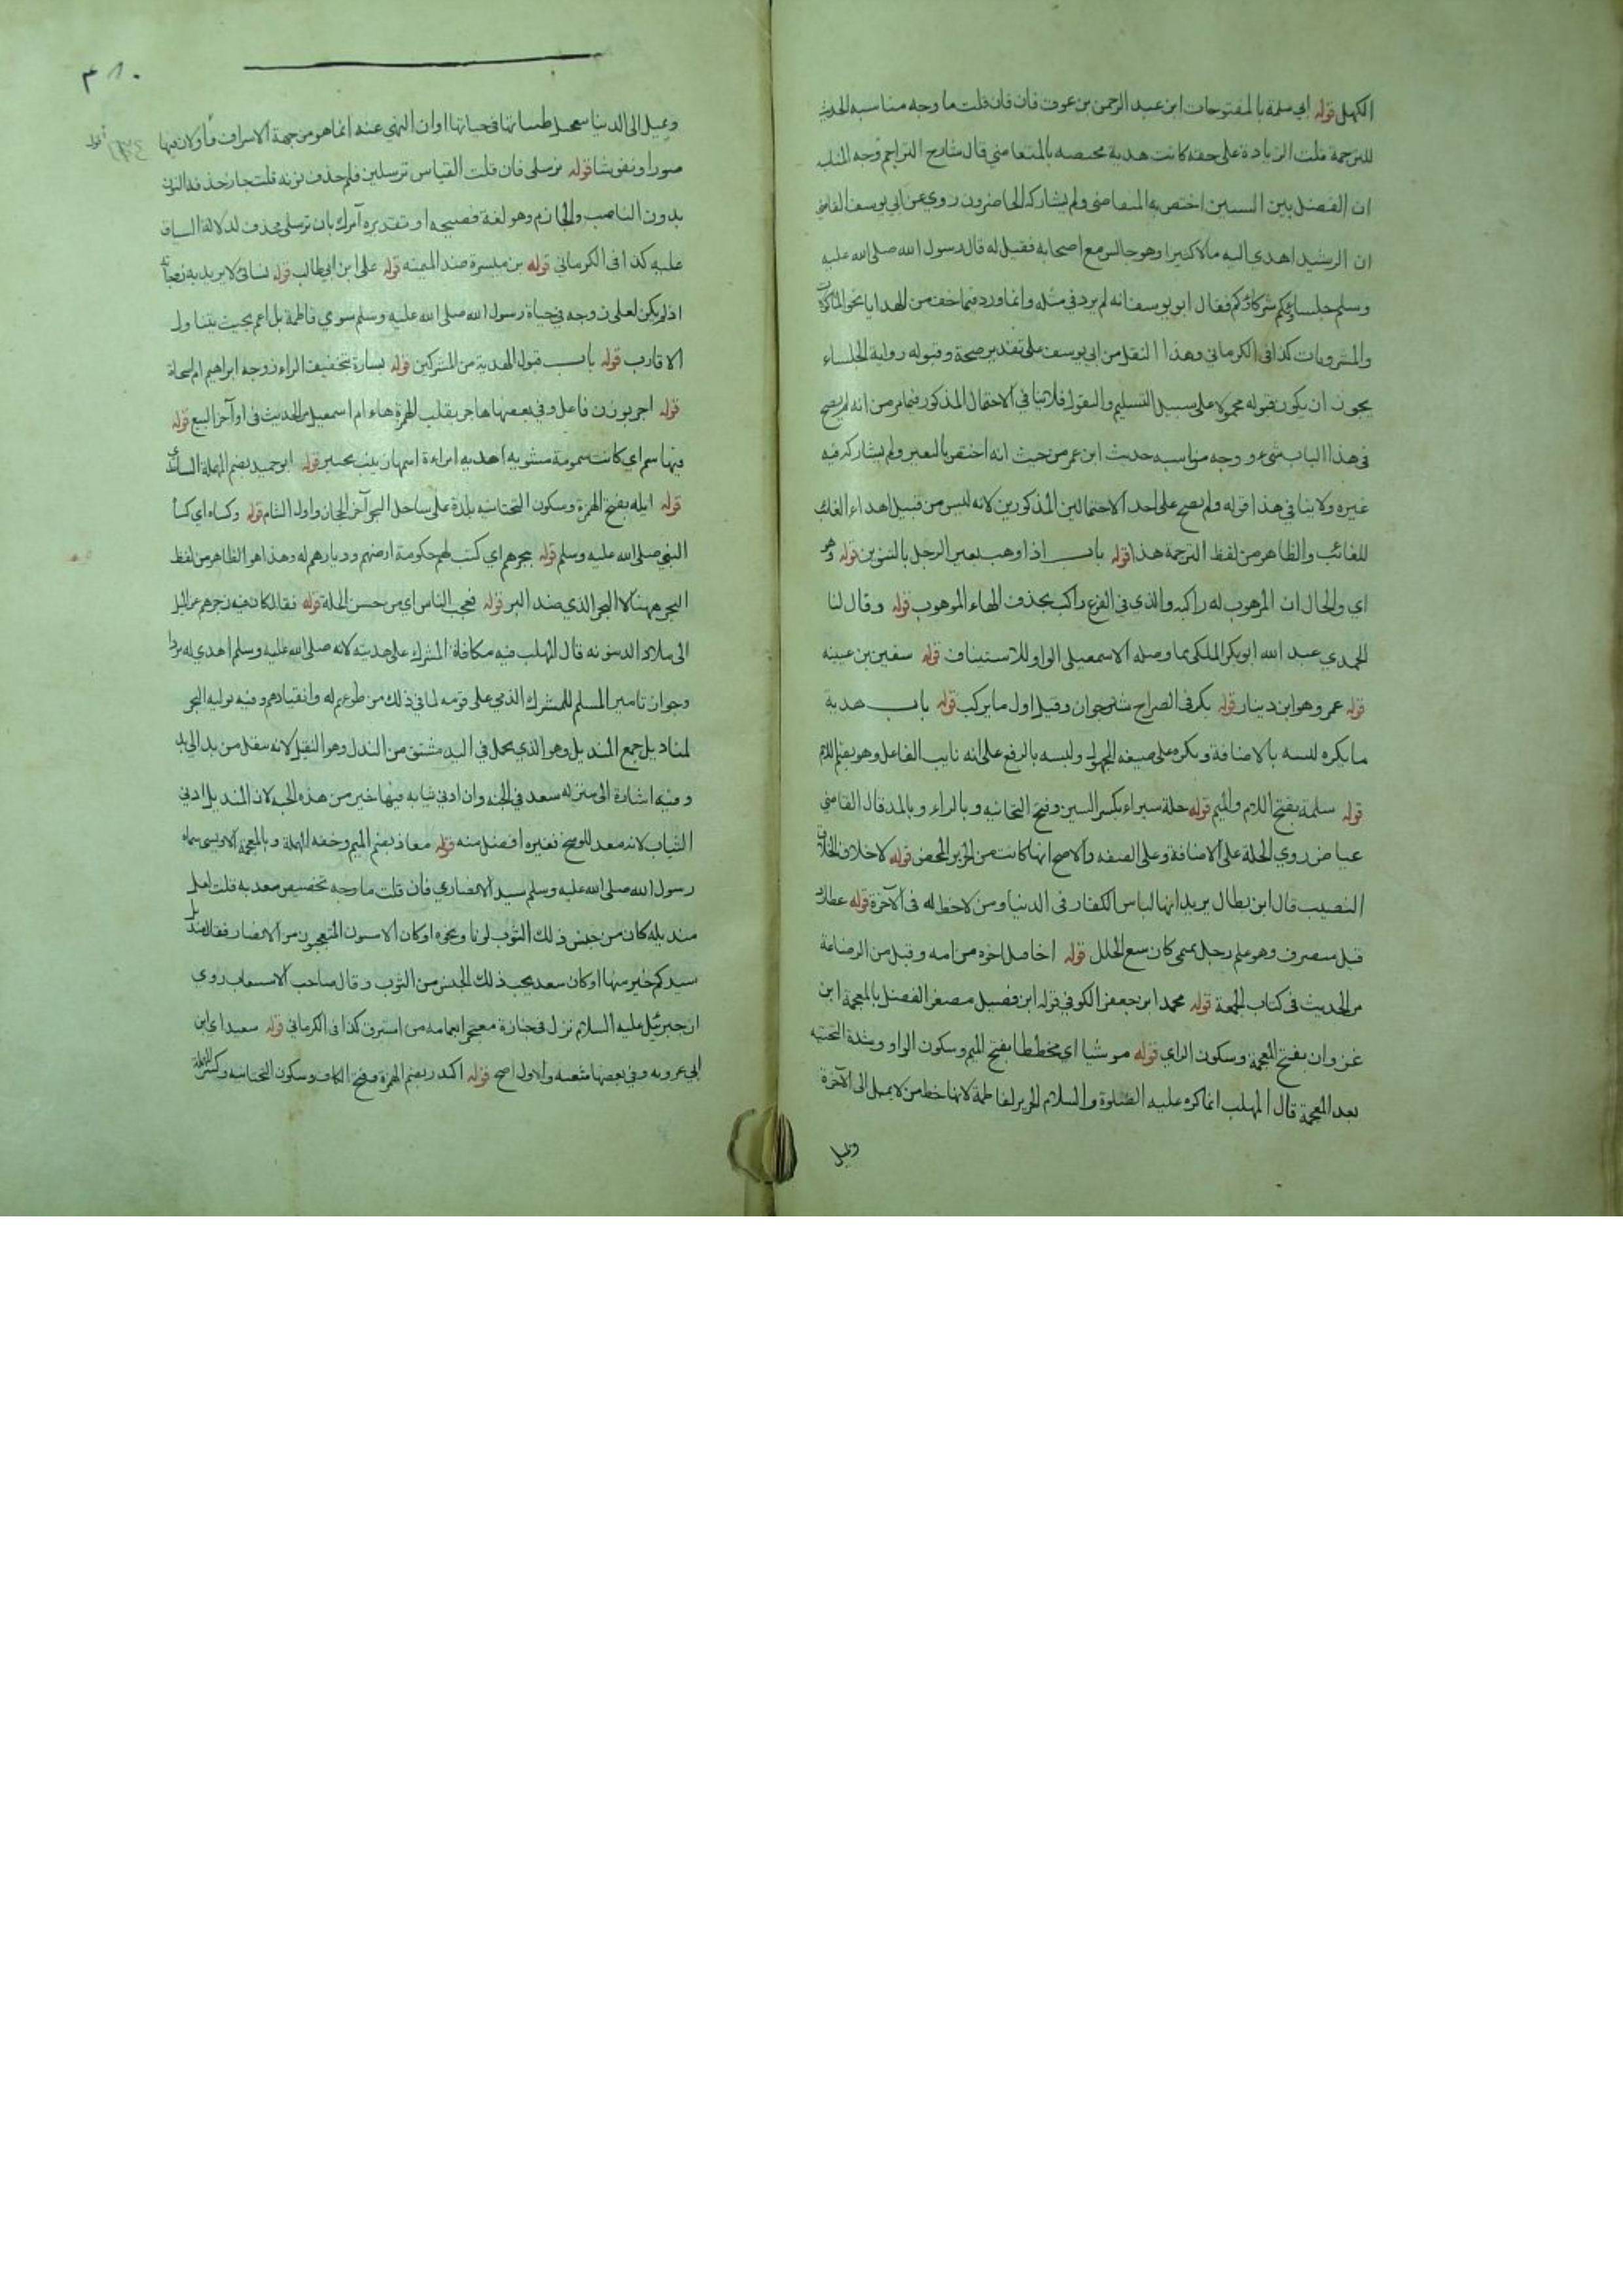 الكهل قوله ابي سلمة بالمفتوحات ابن عبد الرحمن بن عوف فان قلت ما وجه مناسبه الحديث
للترجمة قلت الزيادة على حقه كانت هدية مختصه بالمتقاضي قال شارح التراجم وجه المناسبة
ان الفضل بين السنين اختص به المتقاضي ولم يشاركه الحاضرون روي عن ابي يوسف القاضي
ان الرشيد اهدي اليه مالا كثيرا وهو جالس مع اصحابه فقيل له قال رسول الله صلى الله عليه
وسلم جلساوكم شركاؤكم فقال ابو يوسف انه لم يرد في مثله وانما ورد فيما خف من الهدايا نحو الماكولات
والمشروبات كذا في الكرماني وهذا النقل من ابي يوسف على تقدير صحة وقبوله رواية الجلساء
يجوز ان يكون قبوله محمولا على سبيل التسليم والقول فلا ينافي الاحتمال المذكور فيما مر من انه لم يصح
في هذا الباب شيء ووجه مناسبه حديث ابن عمر من حيث انه اختص بالبعير ولم يشاركه فيه
غيره ولا ينافي هذا قوله ولم يصح على احد الاحتمالين المذكورين لانه ليس من قبيل اهداء الغائب
للغائب والظاهر من لفظ الترجمة هذا قوله باب اذا وهب بعير الرجل بالتنوين قوله وهو
اي والحال ان الموهوب له راكبه والذي في الفرع راكب بحذف الهاء الموهوب قوله وقال لنا
الحمدي عبد الله ابو بكر الملكي مما وصله الاسمعيلي الواو للاستيناف قوله سفين بن عيينه
قوله عمرو هو ابن دينار قوله بكر في الصراح شتر جوان وقيل اول ما يركب قوله باب هدية
ما يكره لبسه بالاضافة ويكره على صيغه المجهول ولبسه بالرفع على انه نايب الفاعل وهو بضم اللام
قوله سلمة بفتح اللام والميم قوله حلة سيراء بكسر السين وفتح التحانيه وبالراء وبالمد قال القاضي
عياض روي الحلة على الاضافة وعلى الصفه والاصح انها كانت من الحرير المحض قوله لاخلاق الخلاق
النصيب قال ابن بطال يريد انها لباس الكفار في الدنيا ومن لا حظ له في الآخرة قوله عطارد
قيل منصرف وهو علم رجل تميمي كان يبيع الحلل قوله اخا قيل اخوه من امه وقيل من الرضاعة
مر الحديث في كتاب الجمعة قوله محمد ابن جعفر الكوفي قوله ابن فضيل مصغر الفضل بالمعجمة ابن
غزوان بفتح المعجمة وسكون الزاي قوله موشيا اي مخططا بفتح الميم وسكون الواو وشدة التحتيه
بعد المعجمة قال المهلب انما كره عليه الصلوة والسلام الحرير لفاطمة لانها حظ من لا يميل الى الآخرة
وتميل
٣٨٠
وتميل الى الدنيا في حياتها او ان النهي عنه انما هو من جهة الاسراف او لان فيها
صورا ونقوشا قوله ترسلي فان قلت القياس ترسلين فلم حذف نونه قلت جاز حذف النون
بدون الناصب والجازم وهو لغة فصيحه او تقديره آمرك بان ترسلي فحذف لدلالة السياق
عليه كذا في الكرماني قوله بن ميسرة ضد الميمنه قوله على ابن ابي طالب قوله نسائي لا يريد به زوجاته
اذ لم يكن لعلي زوجه في حياة رسول الله صلى الله عليه وسلم سوي فاطمة بل اعم بحيث يتناول
الاقارب قوله باب قبول الهدية من المشركين قوله بسارة بتخفيف الراء زوجه ابراهيم ام اسحاق
قوله اجر بوزن فاعل وفي بعضها هاجر بقلب الهمزة هاء ام اسمعيل مر الحديث في اواخر البيع قوله
فيها سم اي كانت مسمومة مشويه اهديه امراءة اسمها زينب بخيبر قوله ابو حميد بضم المهملة الساعدي
قوله ايله بفتح الهمزة وسكون التحتانيه بلدة على ساحل البحر آخر الحجاز واول الشام قوله وكساه اي كسا
النبي صلى الله عليه وسلم قوله ببحرهم اي كتب لهم حكومة ارضهم وديارهم له وهذا هو الظاهر من لفظ
البحر ههنا لا البحر الذي ضد البر قوله فعجب الناس اي من حسن الحلة قوله فقال
الى بلاد قال المهلب فيه مكافاة المشرك على هديته لانه صلى الله عليه وسلم اهدي له بردا
وجواز تامير المسلم للمشرك الذمي على قومه لما في ذلك من طوعهم له وانقيادهم وفيه توليه البحر
لمناديل جمع المنديل وهو الذي يحمل في اليد مشتق من الندل وهو النقل لانه ينقل من يد الى يد
وفيه اشارة الى منزله سعد في الجنه وان ادني ثيابه فيها خير من هذه الجبه لان المنديل ادني
الثياب لانه معد للوسخ فغيره افضل منه قوله معاذ بضم الميم وخفه المهملة وبالمعجمة الاويسي سماه
رسول الله صلى الله عليه وسلم سيد الانصاري فان قلت ما وجه تخصيص سعد به قلت لعل
منديله كان من جنس ذلك الثوب لونا ونحوه او كان اللامسون المتعجبون من الانصار فقال منديل
سيدكم خير منها او كان سعد يحب ذلك الجنس من الثوب وقال صاحب الاستيعاب روي
ان جبرئيل عليه السلام نزل في جنازة معتجرا بعمامه من استبرق كذا في الكرماني قوله سعيد اي ابن
ابي عروبه وفي بعضها شعبه والاول اصح قوله اكيدر بضم الهمزة وفتح الكاف وسكون التحتانيه وكسر المهملة